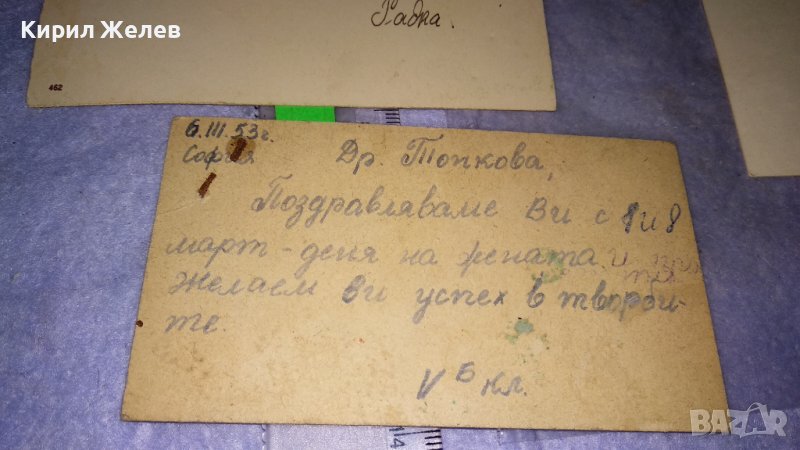 Кирил Желев
Радка.
462
6.III.53г.
София
Др. Топкова,
Поздравляваме Ви с 1 и 8
март - деня на жената и
Желаем Ви успех в творби-
те.
V Б кл.
14
BAZAR